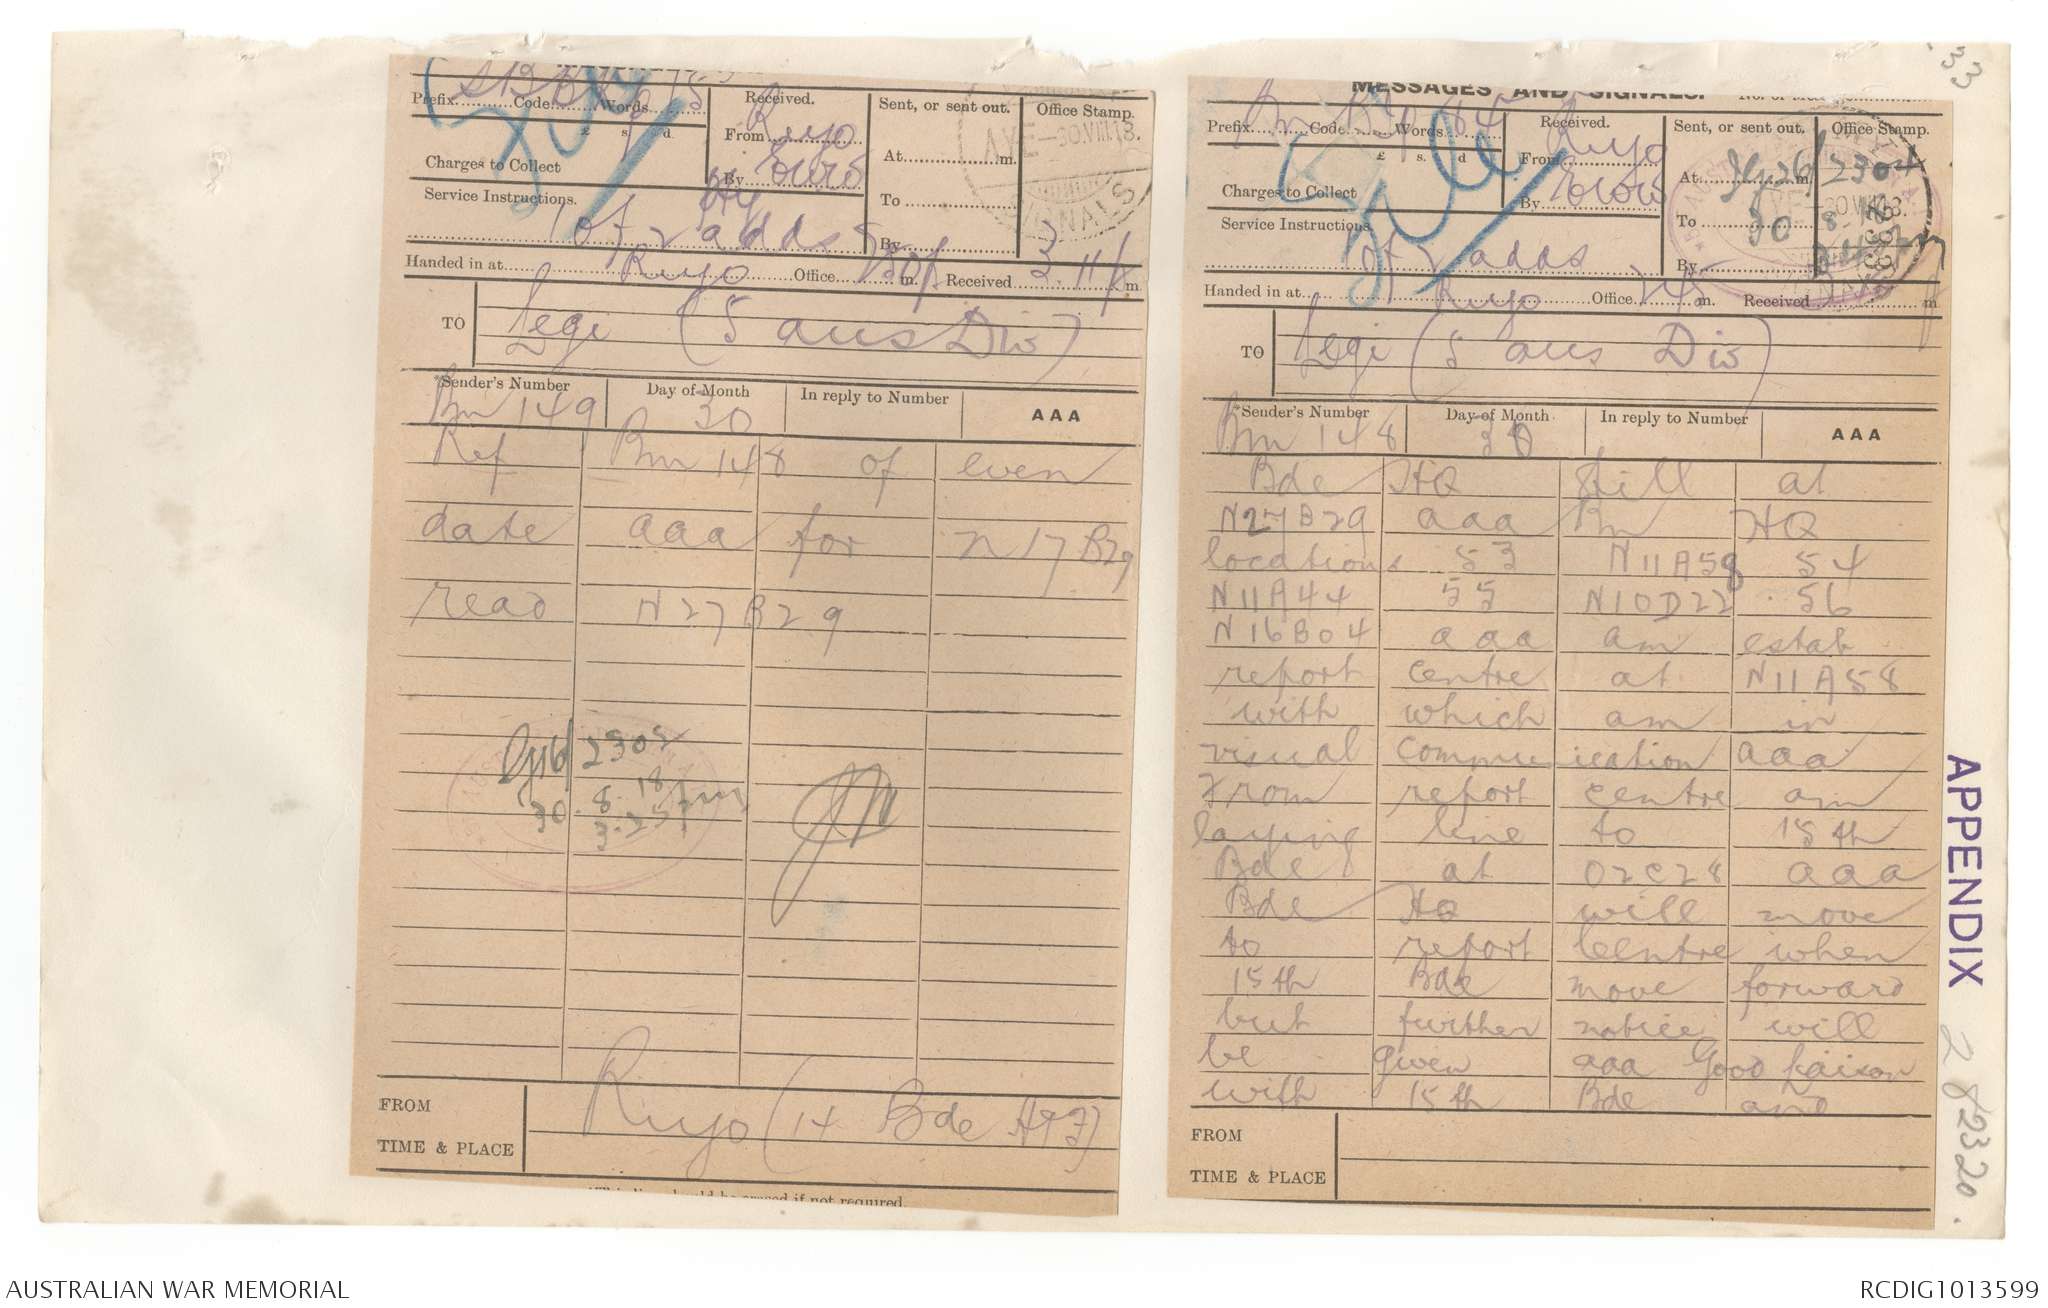 33
Prefix Code Words
£ s. d.
Charges to Collect
Service Instructions.
1 of 2 adds
Received.
From Ruyo
By
Sent, or sent out.
At m.
To
By
Office Stamp.
30.VIII.18.
SIGNALS
Handed in at Ruyo Office m. Received m.
TO Legi (5 aus Div)
Sender's Number Bm 149
Day of Month 30
In reply to Number
AAA
Ref Bm 148 of even
date aaa for N17B29
read N27B29
2305
30.8.18
3.25pm
FROM Ruyo (14 Bde AIF)
TIME & PLACE
MESSAGES AND SIGNALS.
Prefix Code Words
£ s. d
Charges to Collect
Service Instructions
of 2 adds
Received.
From Ruyo
By
Sent, or sent out.
At m.
To
By
Office Stamp.
2304
30 8 18
30.VIII.18.
Handed in at Ruyo Office m. Received m.
TO Legi (5 aus Div)
*Sender's Number Bm 148
Day of Month 30
In reply to Number
AAA
Bde HQ still at
N27B29 aaa Bn HQ
locations 53 N11A58 54
N11A44 55 N10D22 56
N16B04 aaa am estab
report centre at N11A58
with which am in
visual communication aaa
From report centre am
laying line to 15th
Bde at O2C28 aaa
Bde HQ will move
to report Centre when
15th Bde move forward
but further notice will
be given aaa Good liaison
with 15th Bde and
FROM
TIME & PLACE
APPENDIX 2 82320
AUSTRALIAN WAR MEMORIAL
RCDIG1013599